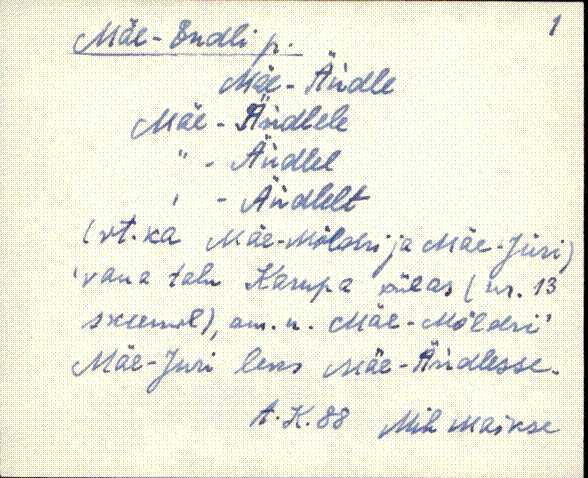 1
Mäe-Endli p.
Mäe-Ändle
Mäe-Ändlele
" - Ändlel
" - Ändlelt
(vt. ka Mäe-Möldri ja Mäe-Jüri)
'vana talu Karupa külas (nr. 13
skeemil), am. n. Mäe-Möldri'
Mäe-Juri lens Mäe-Ändlesse.
A.K. 88 Mih